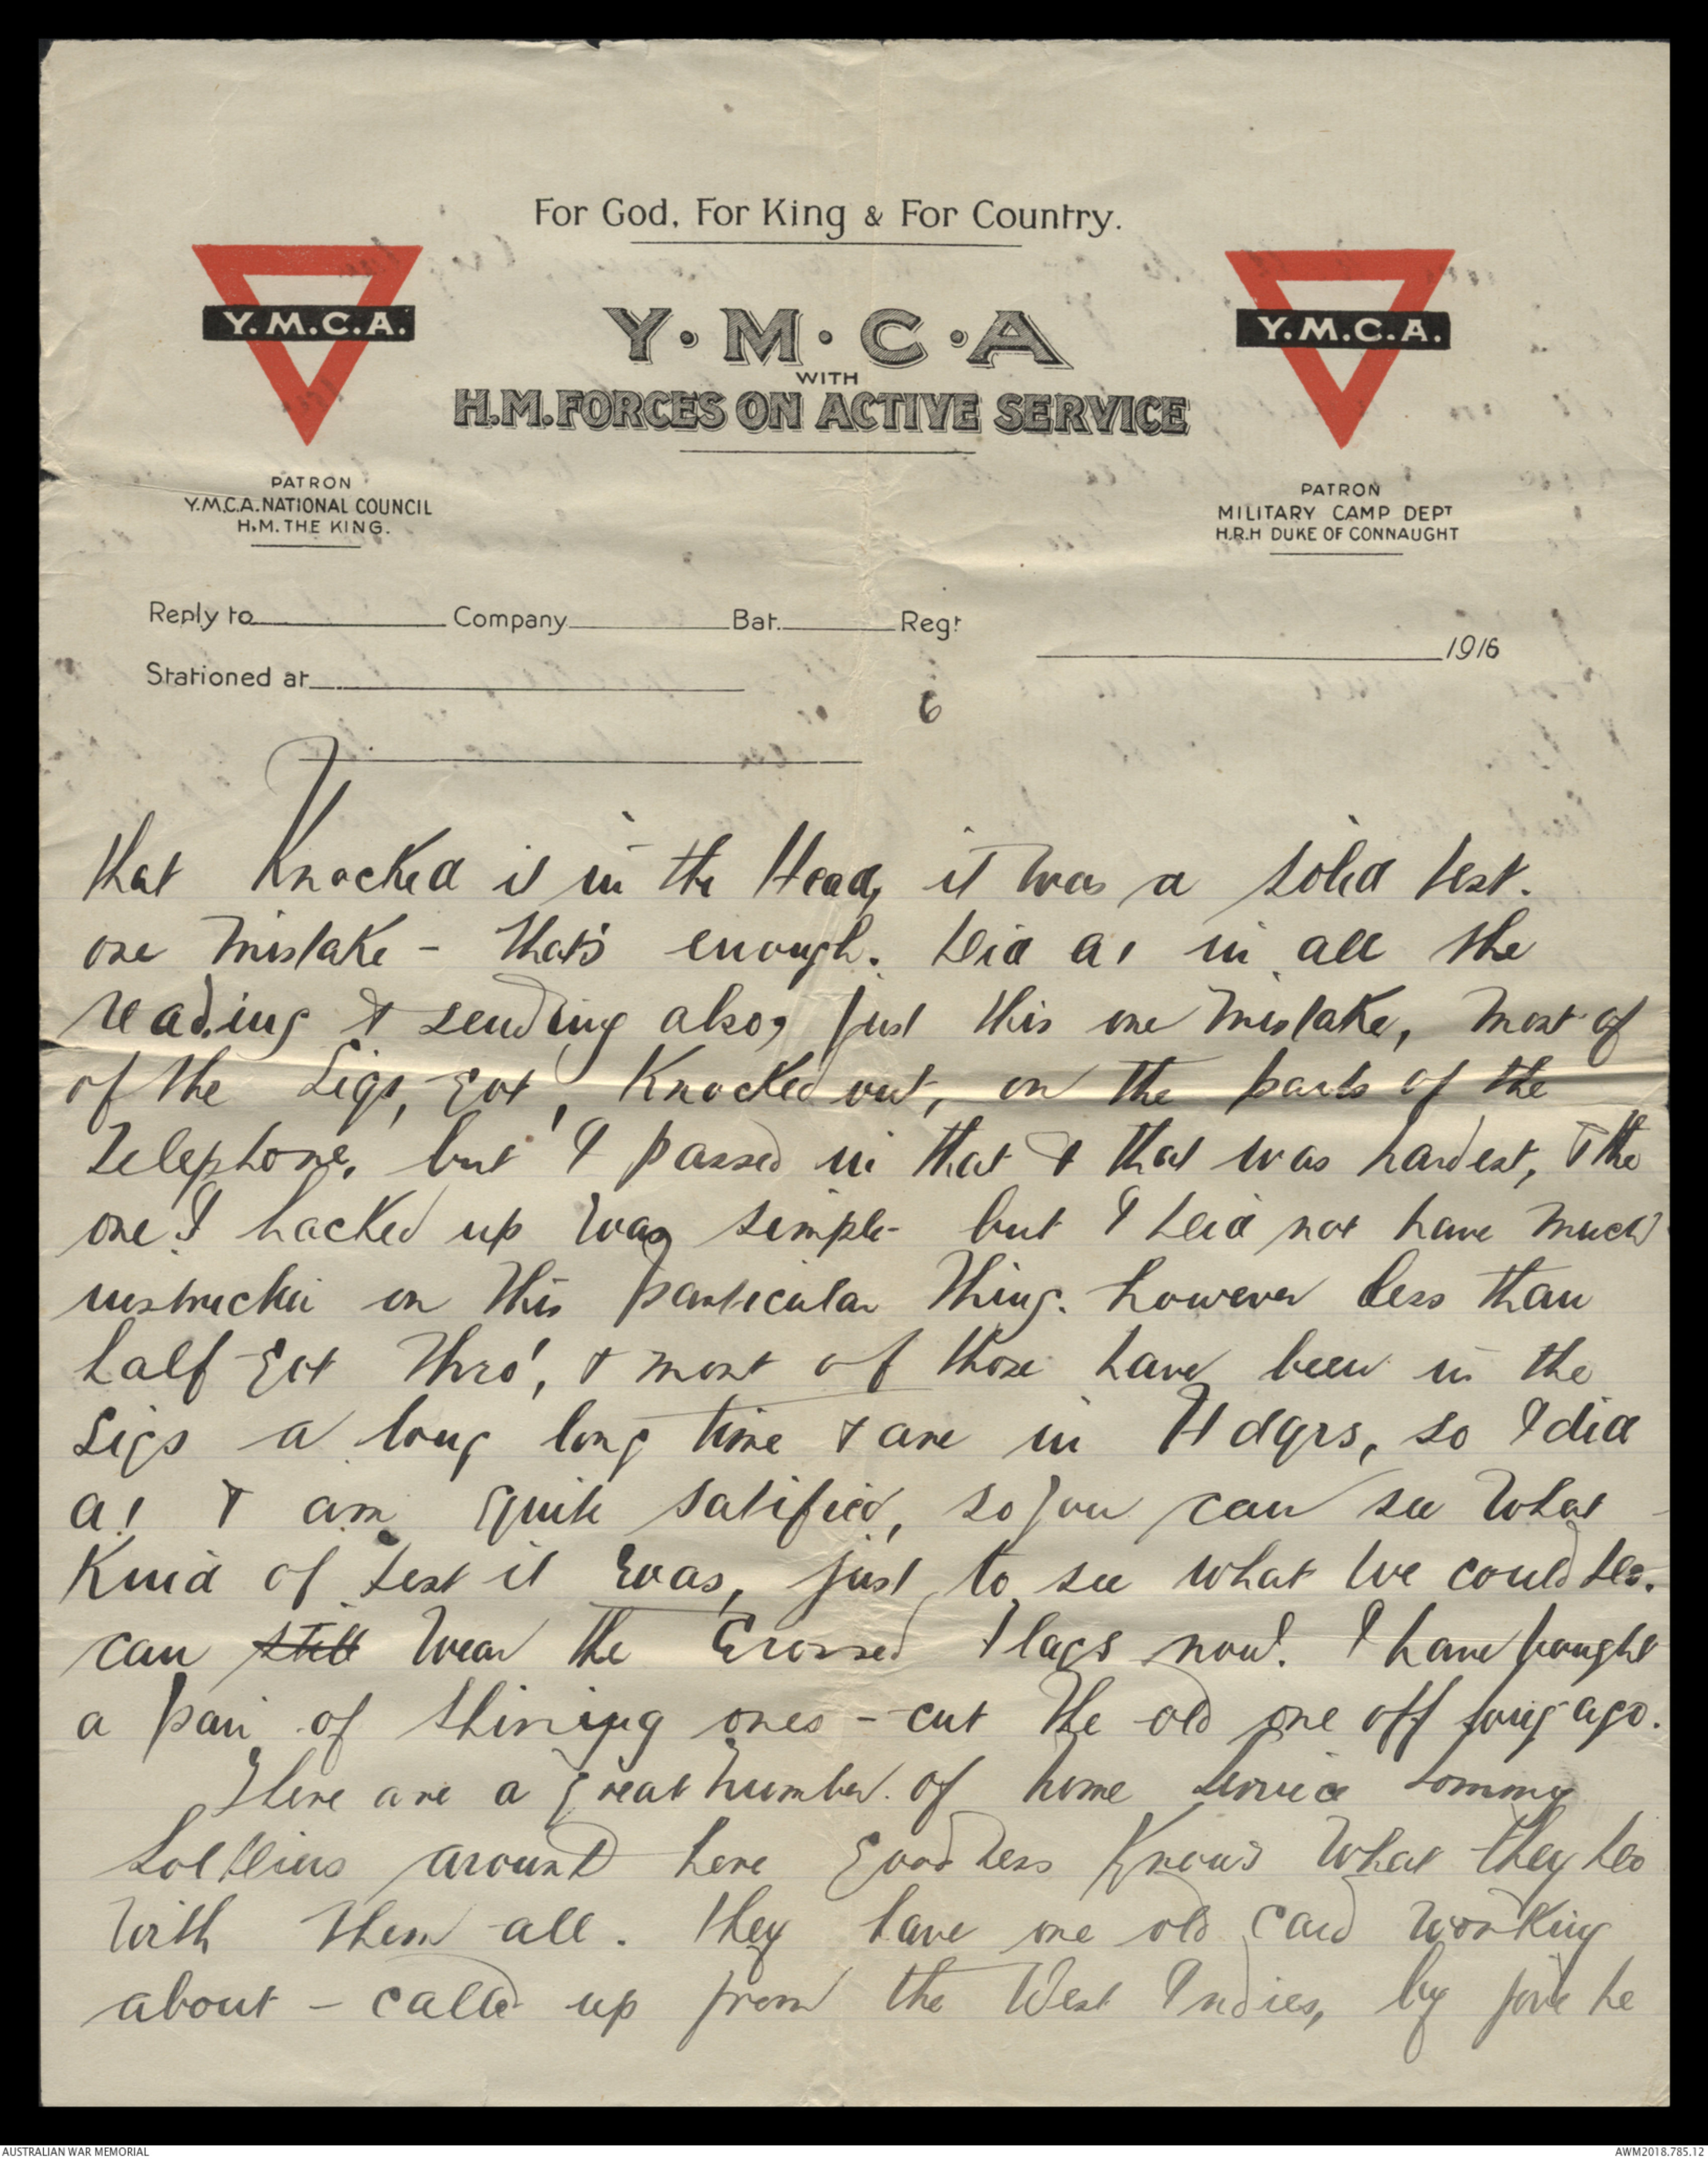 For God, For King & For Country.
Y.M.C.A.
Y.M.C.A.
Y.M.C.A
WITH
H.M. FORCES ON ACTIVE SERVICE
PATRON
Y.M.C.A. NATIONAL COUNCIL
H.M. THE KING.
PATRON
MILITARY CAMP DEPT
H.R.H DUKE OF CONNAUGHT
Reply to Company Bat. Regt
1916
Stationed at
6
that Knocked it in the Head, it was a solid test.
one mistake - that's enough. Did A1 in all the
reading & sending also, just this one mistake, most of
of the Sigs, got, Knocked out, on the parts of the
telephone, but I passed in that & that was hardest, & the
one I hacked up was simple - but I did not have much
instruction on this particular thing. however less than
half got thro', & most of those have been in the
Sigs a long long time & are in Hdqrs, so I did
A1 & am quite satified, so you can see what
Kind of test it was, just to see what we could do.
can still wear the Crossed Flags now. I have bought
a pair of shining ones - cut the old one off long ago.
There are a great number of home service tommy
soldiers around here goodness Knows what they do
with them all. they have one old card working
about - called up from the West Indies, by jove he
AUSTRALIAN WAR MEMORIAL
AWM2018.785.12